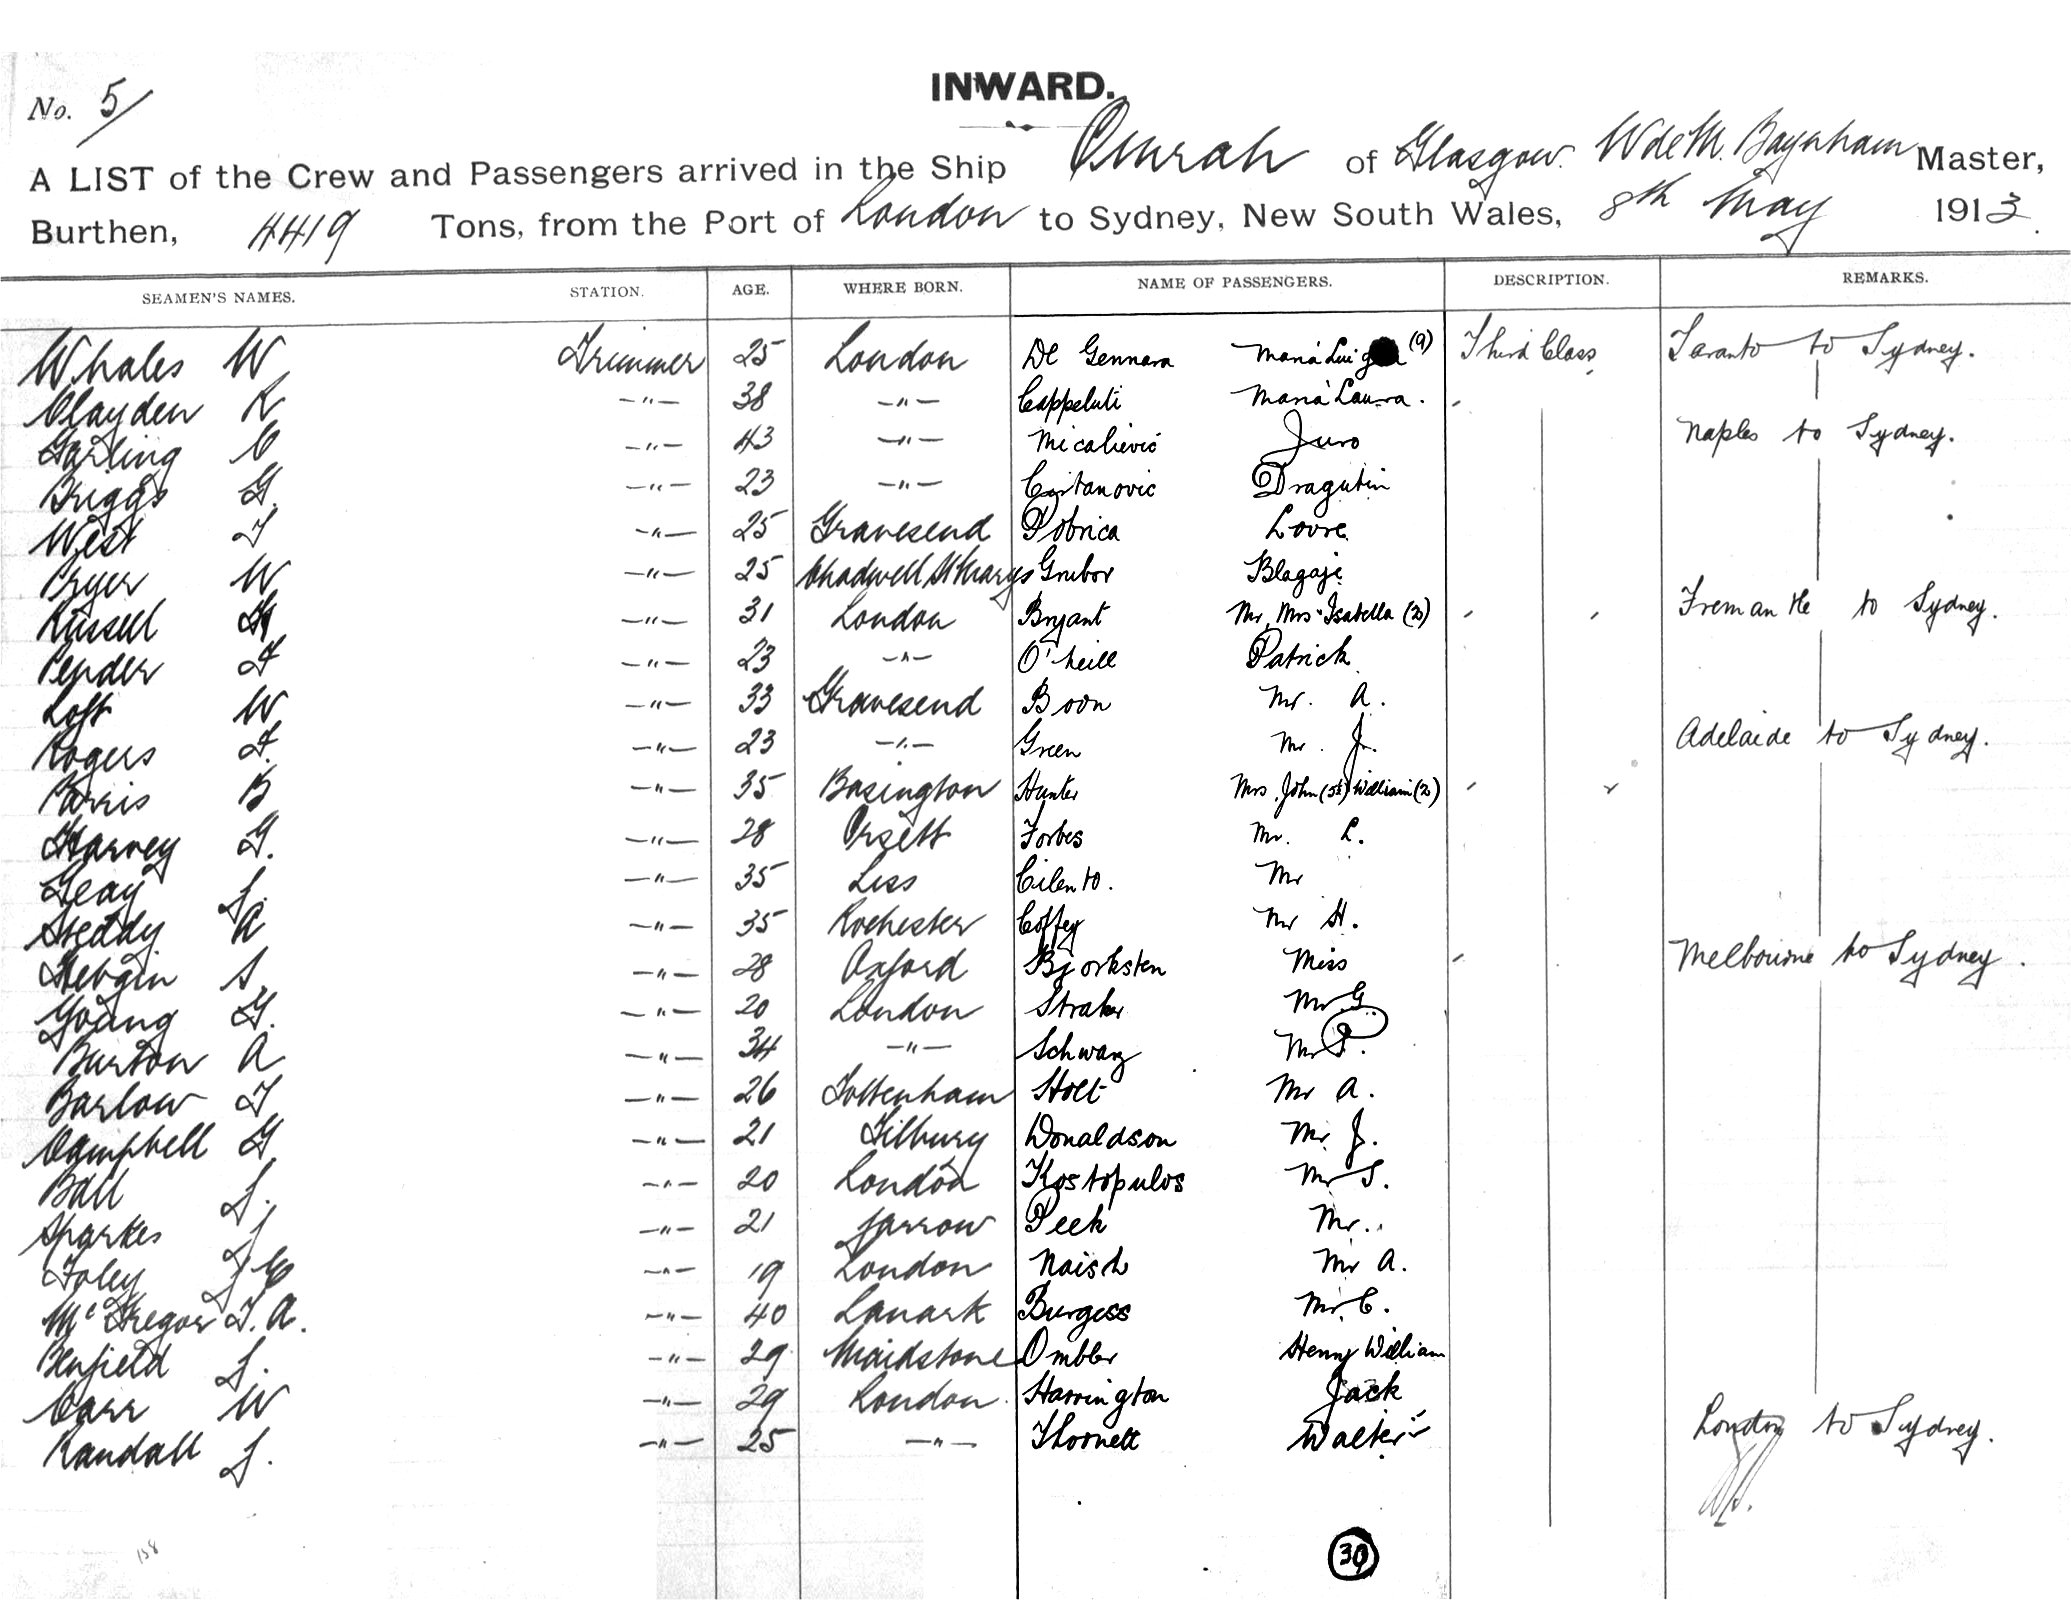 INWARD.
No. 5/
A LIST of the Crew and Passengers arrived in the Ship Omrah of Glasgow. W de M. Baynham Master,
Burthen, 4419 Tons, from the Port of London to Sydney, New South Wales, 8th May 1913.
SEAMEN'S NAMES. STATION. AGE. WHERE BORN. NAME OF PASSENGERS. DESCRIPTION. REMARKS.
Whales W Trimmer 25 London De Gennara Maria (9) Third Class Taranto to Sydney.
Clayden R —"— 38 —"— Cappeluti Maria Laura.
Garling C —"— 43 —"— Micalievic Juro Naples to Sydney.
Briggs G. —"— 23 —"— Dragutin
West T —"— 25 Gravesend Pobrica Lovre.
Pryer W —"— 25 Chadwell St Marys Grubor Blagaje
Russell —"— 31 London Bryant Mr, Mrs Isabella (2) Fremantle to Sydney.
Pender F —"— 23 —"— O'Neill Patrick
Loft W —"— 33 Gravesend Boon Mr. A.
Rogers F. —"— 23 —"— Green Mr. J. Adelaide to Sydney.
Parris B —"— 35 Basington Hunter Mrs, John William (2)
Harvey G. —"— 28 Orsett Forbes Mr. L.
Geay J. —"— 35 Liss Cilento. Mr
Steddy A —"— 35 Rochester Coffey Mr H.
Hebgin S. —"— 28 Oxford Bjorksten Miss Melbourne to Sydney.
Young G. —"— 20 London Straker Mr G.
Burton A —"— 34 —"— Schwarz Mr
Barlow T —"— 26 Tottenham Holt Mr A.
Campbell G —"— 21 Tilbury Donaldson Mr J.
Ball J. —"— 20 London Kostopulos Mr S.
Sparkes J —"— 21 Jarrow Peek Mr.
Foley J —"— 19 London Naish Mr A.
McGregor T. A. —"— 40 Lanark Burgess Mr. C.
Benfield J. —"— 29 Maidstone Ombler Henry William
Carr W —"— 29 London Harrington Jack
Randall J. —"— 25 —"— Thornett Walter London to Sydney.
39
158